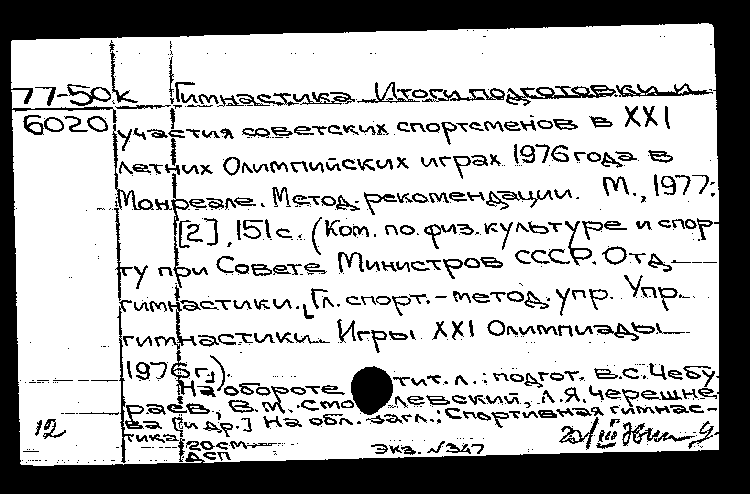 77-50к Гимнастика Итоги подготовки и
6020 участия советских спортсменов в XXI
летних Олимпийских играх 1976 года в
Монреале. Метод. рекомендации. М., 1977.
[2], 151с. (Ком. по физ. культуре и спор-
ту при Совете Министров СССР. Отд.
гимнастики. Гл. спорт.-метод. упр. Упр.
гимнастики. Игры XXI Олимпиады
1976 г.).
На обороте тит. л.: подгот. В.С. Чебу-
раев, В.М. Смолевский, Л.Я. Черешне-
ва [и др.] На обл. загл.: Спортивная гимнас-
тика
12
20см
ДСП Экз. №347